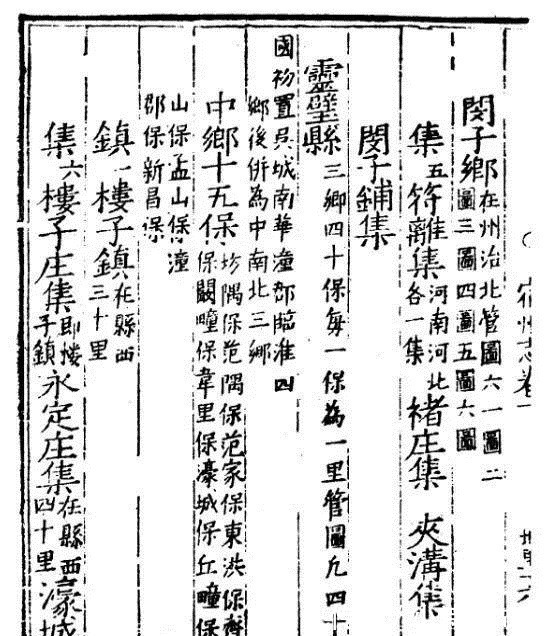 宿州志卷一
閔子鄉在州治北管圖六一圖二
圖三圖四圖五圖六圖
集五符離集河南河北各一集褚庄集 夾溝集
閔子鋪集
靈壁縣三鄉四十保每一保為一里管圖凢四十
國初置吳城南華潼郡臨淮四
鄉後併為中南北三鄉
中鄉十五保坊隅保范隅保范家保東洪保齊
保闞疃保韋里保濠城保丘疃保
山保孟山保潼
郡保新昌保
鎮一樓子鎮在縣西三十里
集六樓子庄集即樓子鎮永定庄集在縣西四十里濠城